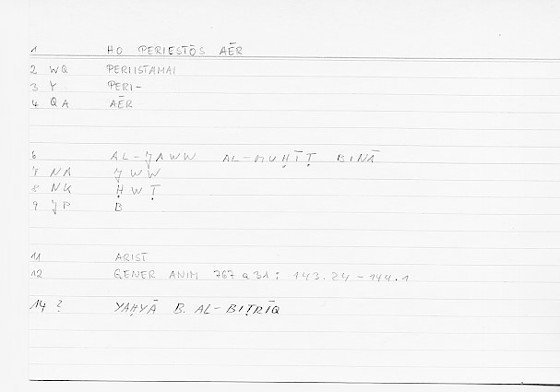 1 HO PERIESTŌS AĒR
2 WQ PERIISTAMAI
3 Y PERI-
4 QA AĒR
6 AL-ǦAWW AL-MUḤĪṬ BINĀ
7 NA ǦWW
8 NK ḤWṬ
9 ǦP B
11 ARIST
12 GENER ANIM 767 a 31: 143.24-144.1
14 ? YAḤYĀ B. AL-BIṬRĪQ